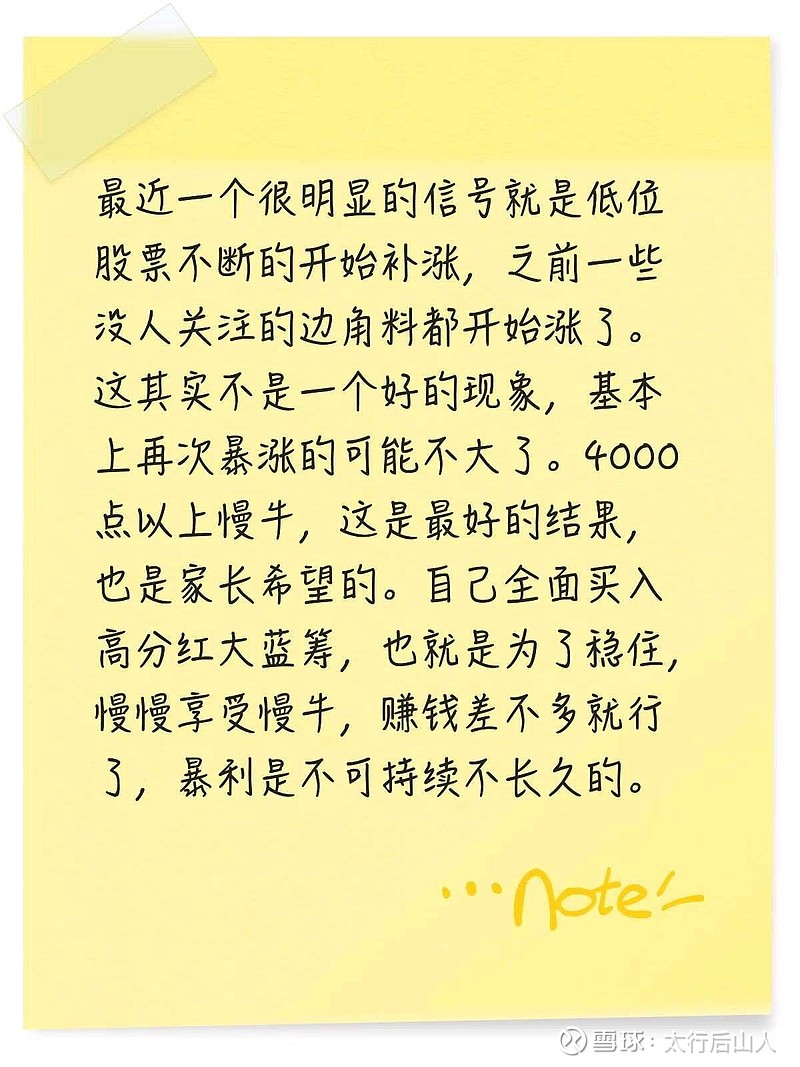 最近一个很明显的信号就是低位
股票不断的开始补涨，之前一些
没人关注的边角料都开始涨了。
这其实不是一个好的现象，基本
上再次暴涨的可能不大了。4000
点以上慢牛，这是最好的结果，
也是家长希望的。自己全面买入
高分红大蓝筹，也就是为了稳住，
慢慢享受慢牛，赚钱差不多就行
了，暴利是不可持续不长久的。
...note
雪球：太行后山人